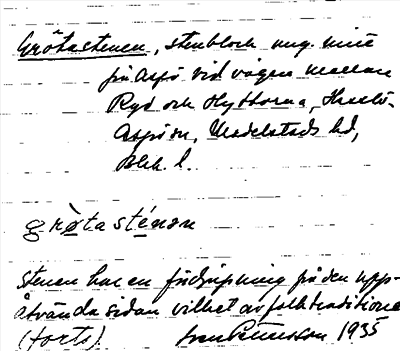 Grötastenen, stenblock ung. mitt
på Aspö vid vägen mellan
Ryd och Hyttorna, Hasslö-
Aspö sn, Medelstads hd,
Blek. l.
grötasténən
Stenen har en fördjupning på den upp-
åtvända sidan vilket av folktraditionen
(forts). Sven Petersson 1935